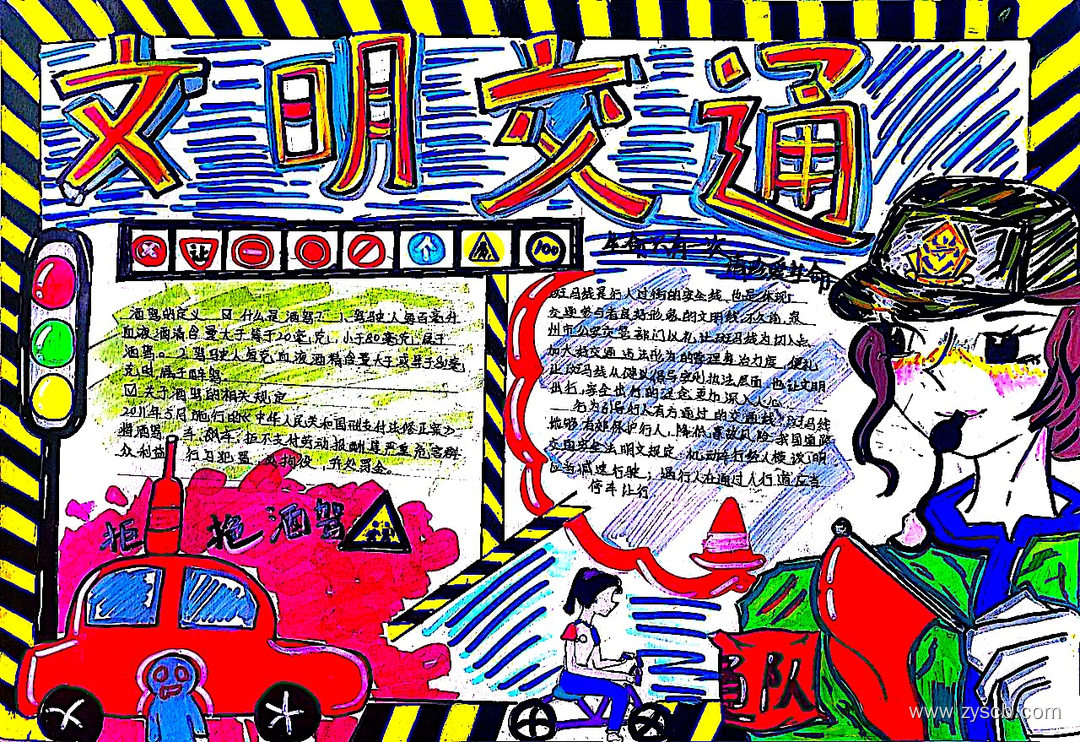 文明交通
让
100
生命只有一次
酒驾的定义 ☑ 什么是酒驾？1.驾驶人每百毫升
血液酒精含量大于等于20毫克，小于80毫克，属于
酒驾。2.驾驶人每克血液酒精含量大于或等于80毫
克的属于醉驾。
☑ 关于酒驾的相关规定
2011年5月施行的《中华人民共和国刑
将酒驾
众利益 行为犯罪，处拘役，并处罚金。
拒绝酒驾
斑马线是行人过街的安全线，也是体现
交通参与者良好形象的文明线，不久前，泉
州市公安交警部门以礼让斑马线为切入点，
加大对交通违法行为的管理整治力度，使礼
让斑马线从倡议倡导
出行，安全出行的理念更加深入人心。
斑马线
能够有效保护行人，降低事故风险，我国道路
交通安全法明文规定，机动车行经人横道，
应当减速行驶；遇行人在通过人行道应当
停车让行
队
www.zyscb.com